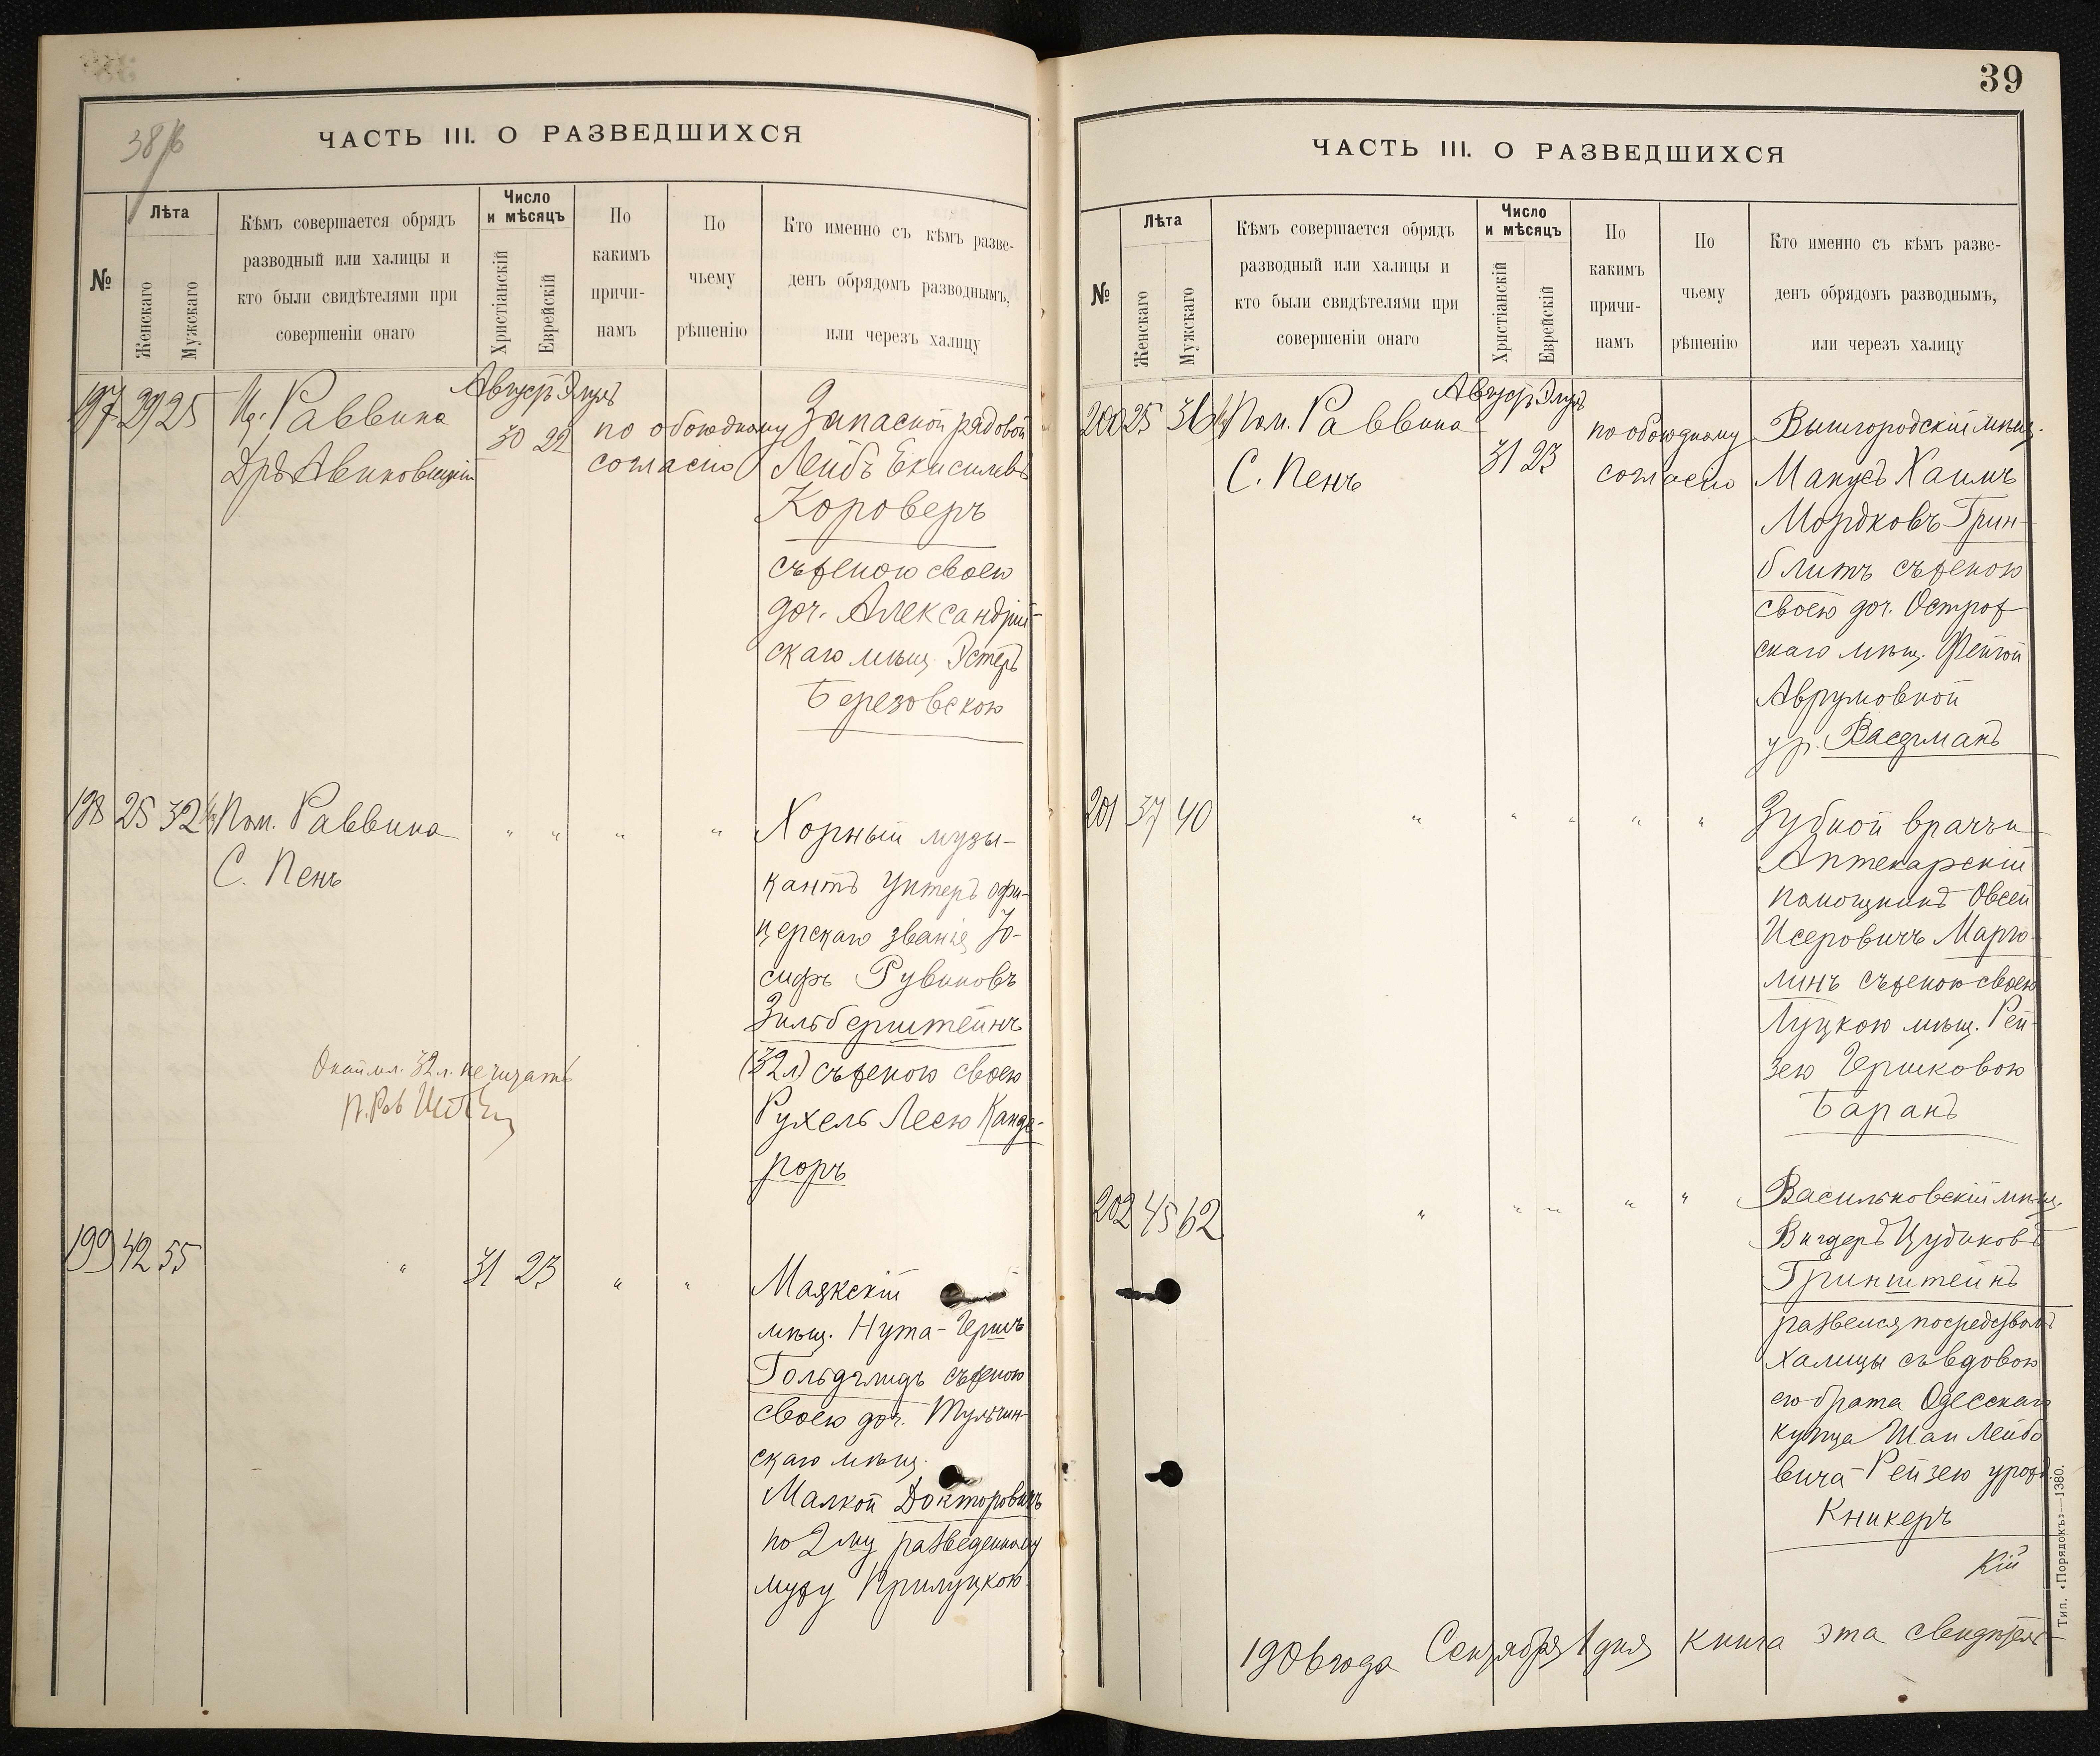 38/б
ЧАСТЬ III. О РАЗВЕДШИХСЯ
№
Лѣта
Женскаго
Мужскаго
Кѣмъ совершается обрядъ
разводный или халицы и
кто были свидѣтелями при
совершеніи онаго
Число
и мѣсяцъ
Христіанскій
Еврейскій
По
какимъ
причи-
намъ
По
чьему
рѣшенію
Кто именно съ кѣмъ разве-
денъ обрядомъ разводнымъ,
или черезъ халицу
197 29 25
Раввина
Август Элул
30 22
по обоюдному
согласію
Запасной рядовой
Лейбъ Екисилевъ
Короверъ
съ женою своею
доч. Александрій-
скаго мѣщ. Эстеръ
Березовскою
198 25 32
Пом. Раввина
С. Пенъ
" " " "
Хорный музы-
кантъ Унтеръ офи-
церскаго званія Іо-
сифъ Рувиновъ
Зильберштейнъ
(32 л) съ женою своею
Рухель Леею Канде-
роръ
32 л. не читать
п. Рав
199 42 55
" 31 23 " "
Маякскій
мѣщ. Нута-Гершъ
Гольдшмидъ съ женою
своею доч. Тульчин-
скаго мѣщ.
Малкой Докторовичъ
по 2 му разведенному
мужу Прилуцкою
39
ЧАСТЬ III. О РАЗВЕДШИХСЯ
№
Лѣта
Женскаго
Мужскаго
Кѣмъ совершается обрядъ
разводный или халицы и
кто были свидѣтелями при
совершеніи онаго
Число
и мѣсяцъ
Христіанскій
Еврейскій
По
какимъ
причи-
намъ
По
чьему
рѣшенію
Кто именно съ кѣмъ разве-
денъ обрядомъ разводнымъ,
или черезъ халицу
200 25 36
Пом. Раввина
С. Пенъ
Август Элул
31 23
по обоюдному
согласію
Вышгородскій мѣщ.
Манусъ Хаимъ
Мордковъ Грин-
блитъ съ женою
своею доч. Острож
скаго мѣщ. Фейгой
Аврумовной
ур. Васерманъ
201 37 40
" " " " "
Зубной врачъ и
Аптекарскій
помощникъ Овсей
Исеровичъ Марго-
линъ съ женою своею
Луцкою мѣщ. Рей-
зею Гершковою
Баранъ
202 45 62
" " " " "
Васильковскій мѣщ.
Вигдеръ Цудиковъ
Гринштейнъ
развелся посредствомъ
халицы съ вдовою
его брата Одесскаго
купца Шаи Лейбо
вича Рейзею урожд.
Кникеръ
кій
1906 года Сентября 1 дня книга эта свидѣтель
Тип. «Порядокъ»—1380.